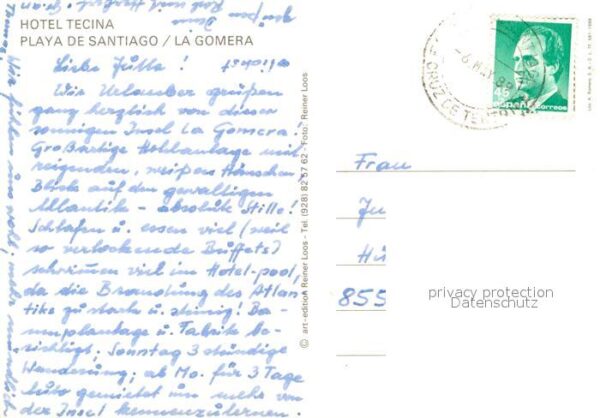 HOTEL TECINA
PLAYA DE SANTIAGO / LA GOMERA
Liebe Jutta!
Wir Urlauber grüßen
ganz herzlich von dieser
sonnigen Insel La Gomera.
Großartige Hotelanlage mit
reizenden, weißen Häuschen
Blick auf den gewaltigen
Atlantik - absolute Stille!
Schlafen u. essen viel (weil
so verlockende Büffets)
schwimmen viel im Hotel-pool,
da die Brandung des Atlan
tiks zu stark u. steinig! Ba-
nanplantage u. Fabrik be-
sichtigt, Sonntag 3 stündige
Wanderung; ab Mo. für 3 Tage
Auto gemietet um mehr von
der Insel kennenzulernen.
Wir fühlen uns wohl; mehr mündlich
© art - edition Reiner Loos - Tel. (928) 82 57 62 - Foto: Reiner Loos
45
españa correos
CRUZ DE TENERI
Frau
Ju
Hü
855
privacy protection
Datenschutz